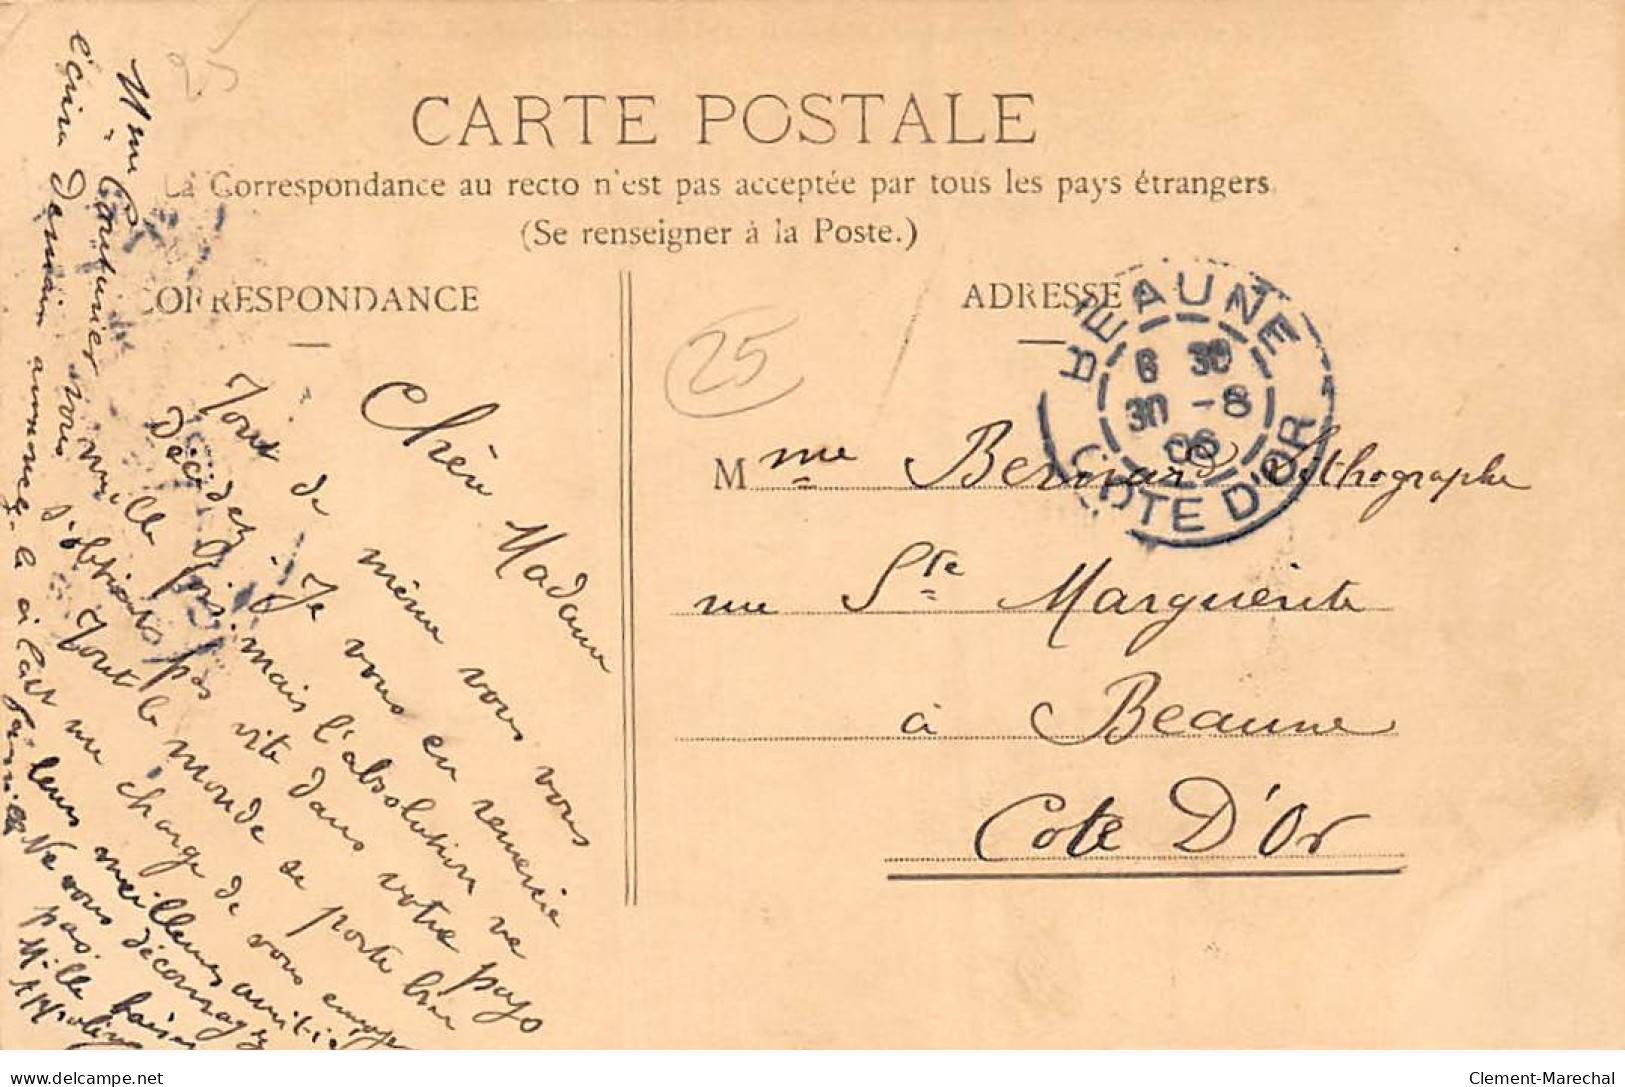 25
CARTE POSTALE
La Correspondance au recto n'est pas acceptée par tous les pays étrangers
(Se renseigner à la Poste.)
CORRESPONDANCE
ADRESSE
25
BEAUNE
6 30
30 -8
06
COTE D'OR
Mme Bernard Lithographe
rue Ste Marguerite
à Beaune
Cote D'Or
Chère Madame
Tout de même vous vous
décidez. Je vous en remercie
mille fois mais l'absolution ne
s'obtient pas vite dans votre pays
Tout le monde se porte bien
et me charge de vous envoyer
leurs meilleures amitiés
Ne vous découragez
pas.
Mille baisers
Mme Couturier
écrira demain
annoncez-le à
famille
delcampe.net
Clement-Marechal